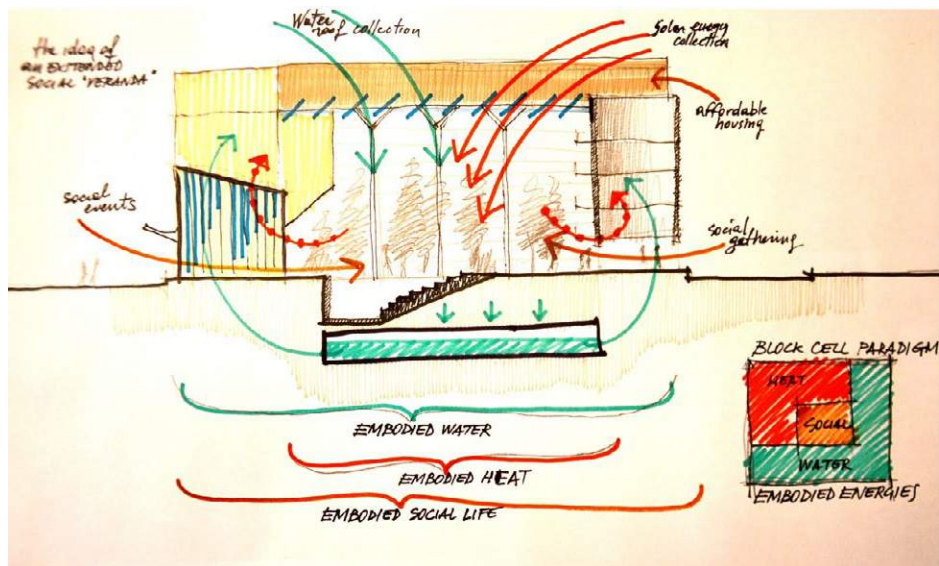 the idea of
an EXTENDED
SOCIAL "VERANDA"
Water
roof collection
Solar energy
collection
affordable
housing
social
events
social
gathering
EMBODIED WATER
EMBODIED HEAT
EMBODIED SOCIAL LIFE
BLOCK CELL PARADIGM
HEAT
SOCIAL
WATER
EMBODIED ENERGIES